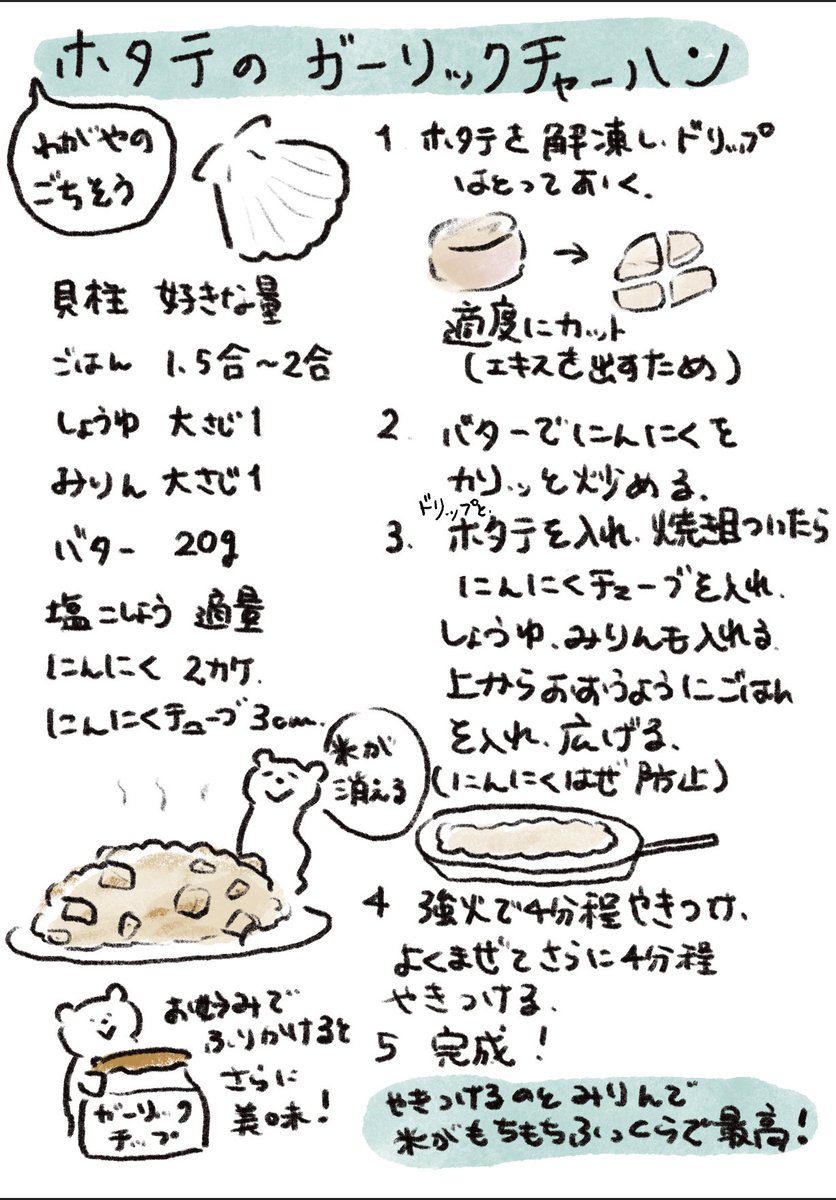 ホタテのガーリックチャーハン
わがやの
ごちそう
貝柱 好きな量
ごはん 1.5合〜2合
しょうゆ 大さじ1
みりん 大さじ1
バター 20g
塩こしょう 適量
にんにく 2カケ.
にんにくチューブ3cm.
米が
消える
お好みで
ふりかけると
さらに
美味!
ガーリック
チップ
1 ホタテを解凍し、ドリップ
はとっておく.
→
適度にカット
(エキスを出すため)
2. バターでにんにくを
カリッと炒める.
ドリップと、
3. ホタテを入れ、焼き目ついたら
にんにくチューブを入れ、
しょうゆ、みりんも入れる.
上からおおうようにごはん
を入れ、広げる、
(にんにくはぜ防止)
4 強火で4分程やきつけ、
よくまぜてさらに4分程
やきつける.
5 完成!
やきつけるのとみりんで
米がもちもちふっくらで最高!